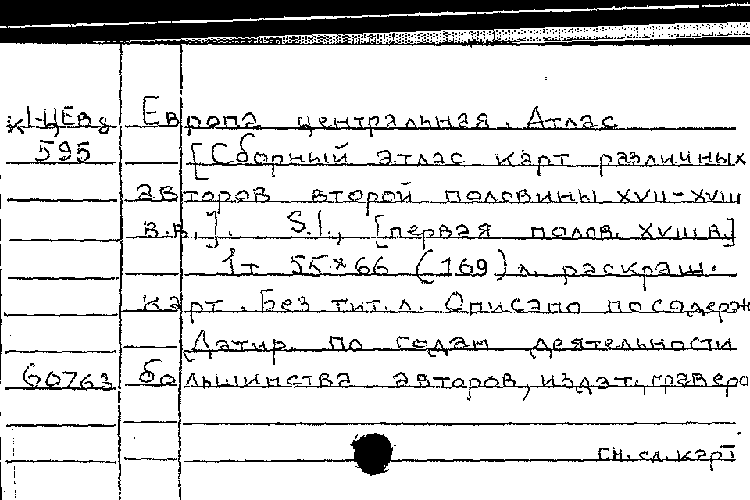 к1-ЦЕв8 Европа центральная. Атлас
595 [Сборный атлас карт различных
авторов второй половины XVII-XVIII
в.в.]. S.l., [первая полов. XVIII в.]
1т 55×66 (169) л. раскраш.
карт. Без тит.л. Описано по содерж
Датир. по годам деятельности
60763 большинства авторов, издат., граверо
см. сл. карт